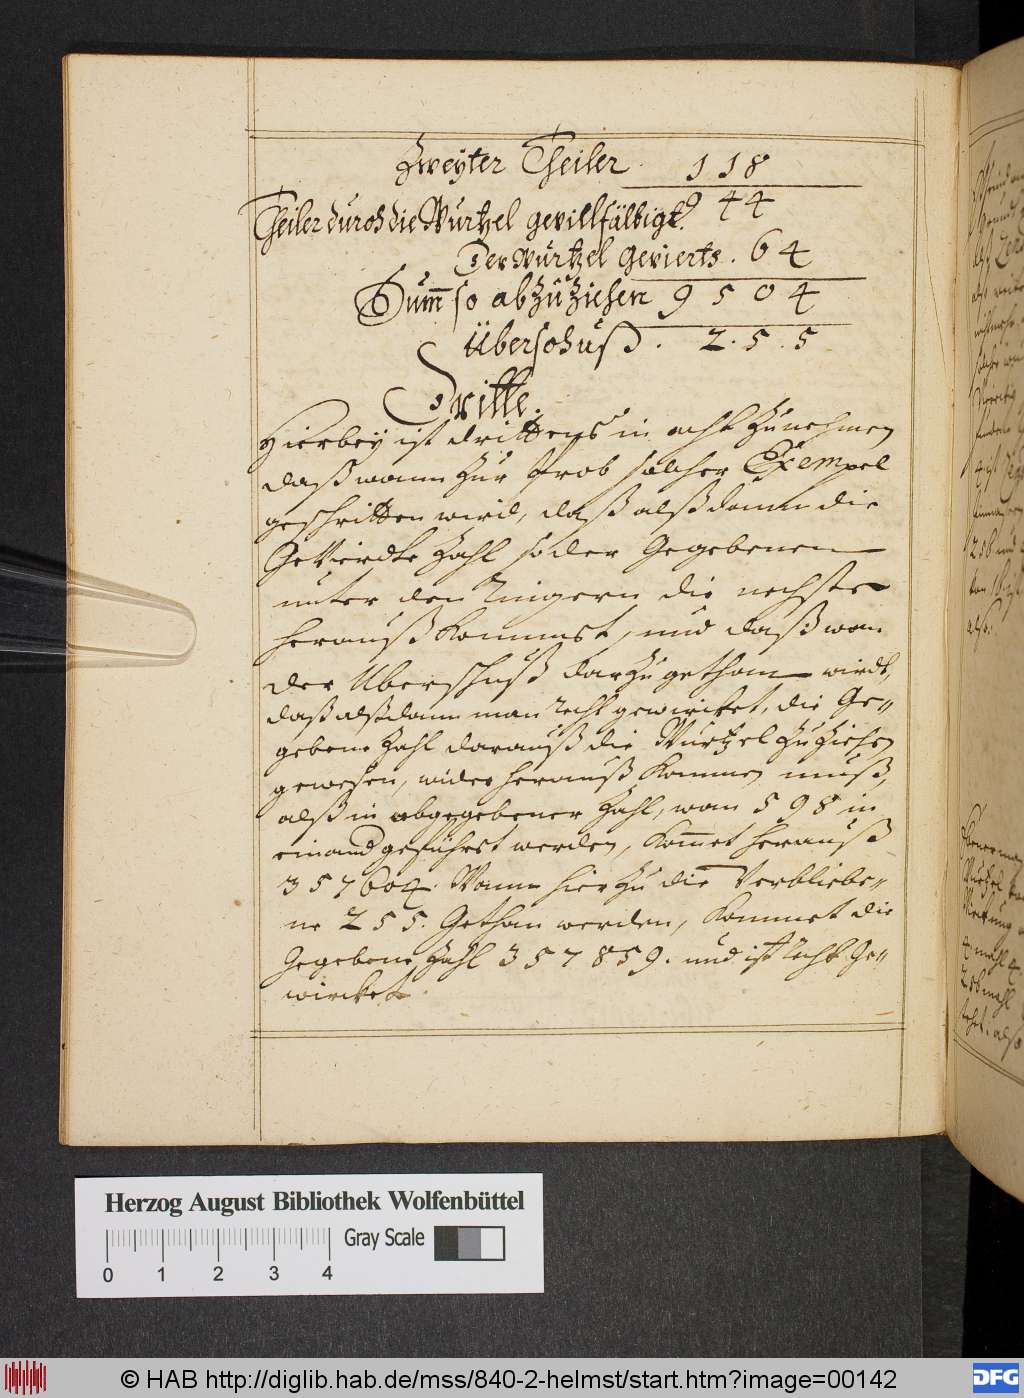 Zweyter Theiler. 118
Theiler durch die Wurtzel gevillfältigt. 944
Der Wurtzel gevierts. 64
Sum̄ so abzuziehen 9504
Überschuß. 2.5.5
Dritte.
Hierbey ist drittens in acht Zunehmen
daß wann Zur Prob solcher Exempel
geschritten wird, daß alßdann die
Gevierdte Zahl so der Gegebenen
unter den Zingern die nechste
herauß Kommet, und daß wan
der Uberschuß darzu gethan wirdt,
daß alßdann man recht gewircket, die Ge=
gebene Zahl darauß die Wurtzel Zuziehen
gewesen, wider herauß Kommen muß,
alß in abgegebener Zahl, wan 598 in
einand geführet werden, Kom̄et herauß
357604. Wann hierzu die Verbliebe=
ne 255. Gethan werden, Kommet die
Gegebene Zahl 357859. und ist recht Ge=
wircket.
Herzog August Bibliothek Wolfenbüttel
Gray Scale
0 1 2 3 4
© HAB http://diglib.hab.de/mss/840-2-helmst/start.htm?image=00142
DFG